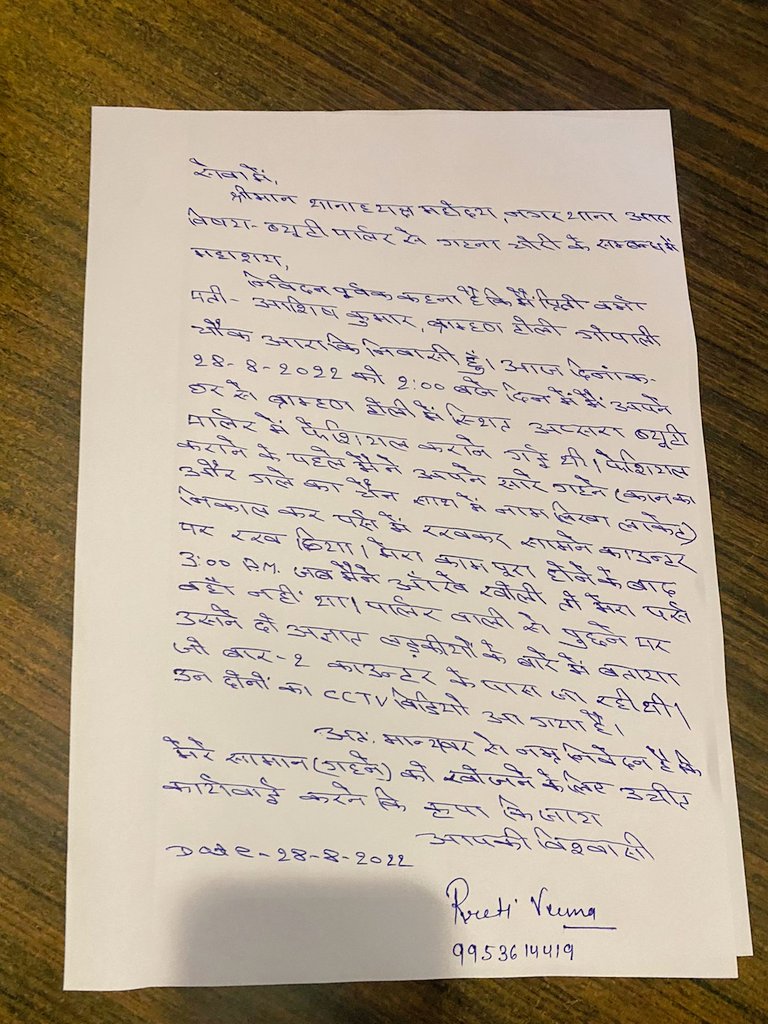 सेवा में,
श्रीमान थानाध्यक्ष महोदय, नगर थाना आरा
विषय- ब्यूटी पार्लर से गहना चोरी के सम्बन्ध में
महाशय,
निवेदन पूर्वक कहना है कि मैं प्रिती वर्मा
पती- आशिष कुमार, ब्राम्हण टोली गोपाली
चौक आरा कि निवासी हूं। आज दिनांक-
28-8-2022 को 2:00 बजे दिन में मैं अपने
घर से ब्राम्हण टोली में स्थित अप्सरा ब्यूटी
पार्लर में फेशियल कराने गई थी। फेशियल
कराने के पहले मैंने अपने सारे गहने (कान का
और गले का चैन साथ में नाम लिखा लाकेट)
निकाल कर पर्स में रखकर सामने काउन्टर
पर रख दिया। मेरा काम पूरा होने के बाद
3:00 P.M. जब मैंने आँखे खोली तो मेरा पर्स
वहाँ नहीं था। पार्लर वाली से पुछने पर
उसने दो अज्ञात लड़कीयों के बारे में बताया
जो बार-2 काउन्टर के पास जा रही थी।
उन दोनों का CCTV विडियो आ गया है।
अतः मान्यवर से नम्र निवेदन है कि
मेरे सामान (गहने) को खोजने के लिए उचीत
कार्यवाई करने कि कृपा कि जाय
आपकी विश्वासी
Date-28-8-2022
Preti Verma
9953614419